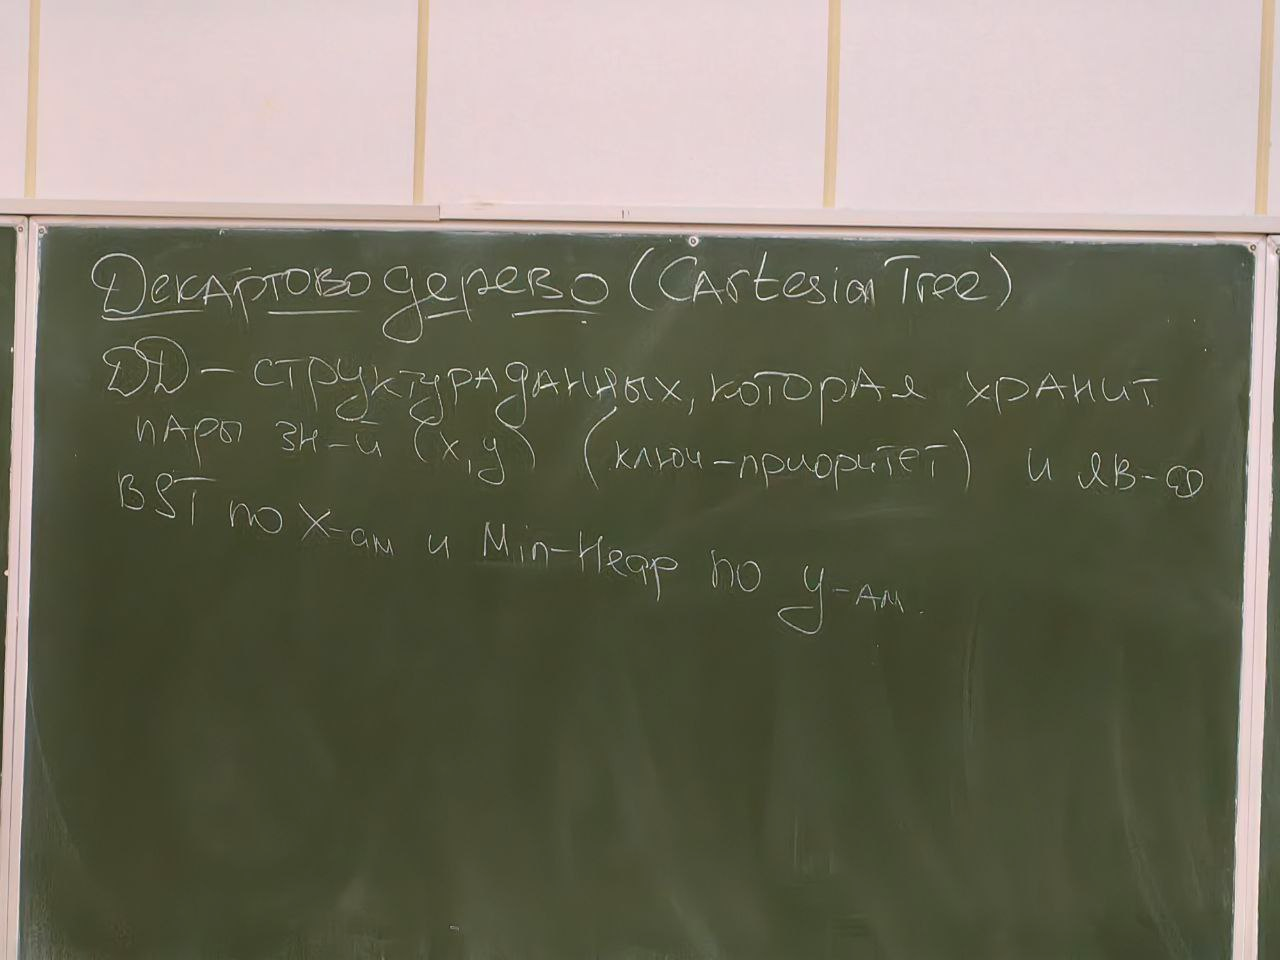 Декартово дерево (Cartesian Tree)
DD - структура данных, которая хранит
пары зн-й (x,y) (ключ-приоритет) и яв-ся
BST по X-ам и Min-Heap по y-ам.